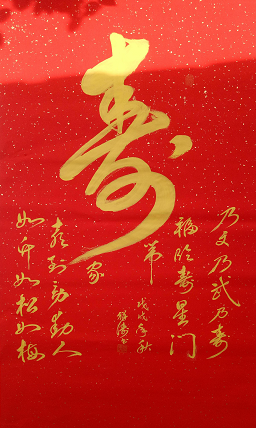 寿
乃文乃武乃寿
福临寿星门
第
春到劳动人
家
如竹如松如梅
戊戌年秋